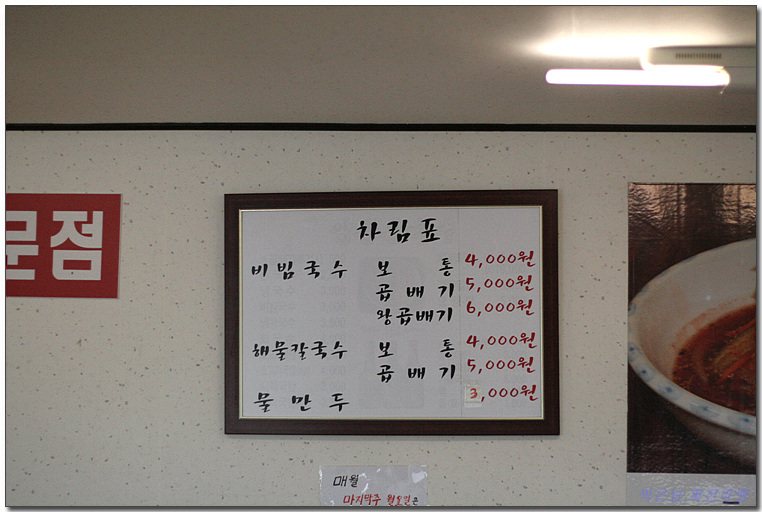 문점
차림표
비빔국수 보통 4,000원
곱배기 5,000원
왕곱배기 6,000원
해물칼국수 보통 4,000원
곱배기 5,000원
물만두 3,000원
매월
마지막주 월요일은